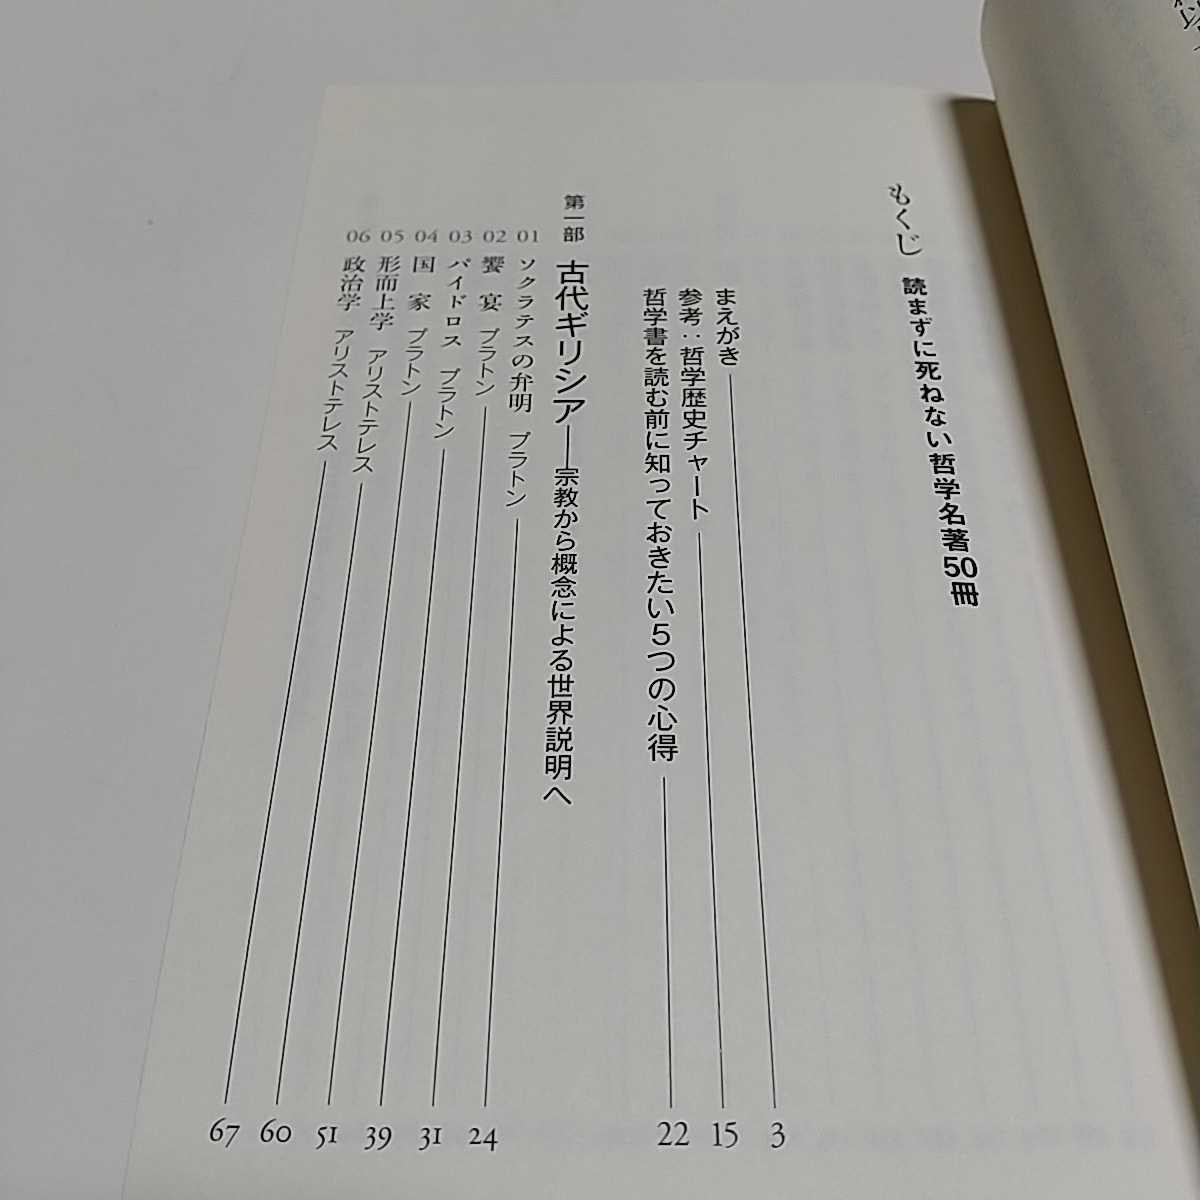 もくじ 読まずに死ねない哲学名著50冊
まえがき 3
参考：哲学歴史チャート 15
哲学書を読む前に知っておきたい5つの心得 22
第一部 古代ギリシア――宗教から概念による世界説明へ
01 ソクラテスの弁明 プラトン 24
02 饗宴 プラトン 31
03 パイドロス プラトン 39
04 国家 プラトン 51
05 形而上学 アリストテレス 60
06 政治学 アリストテレス 67